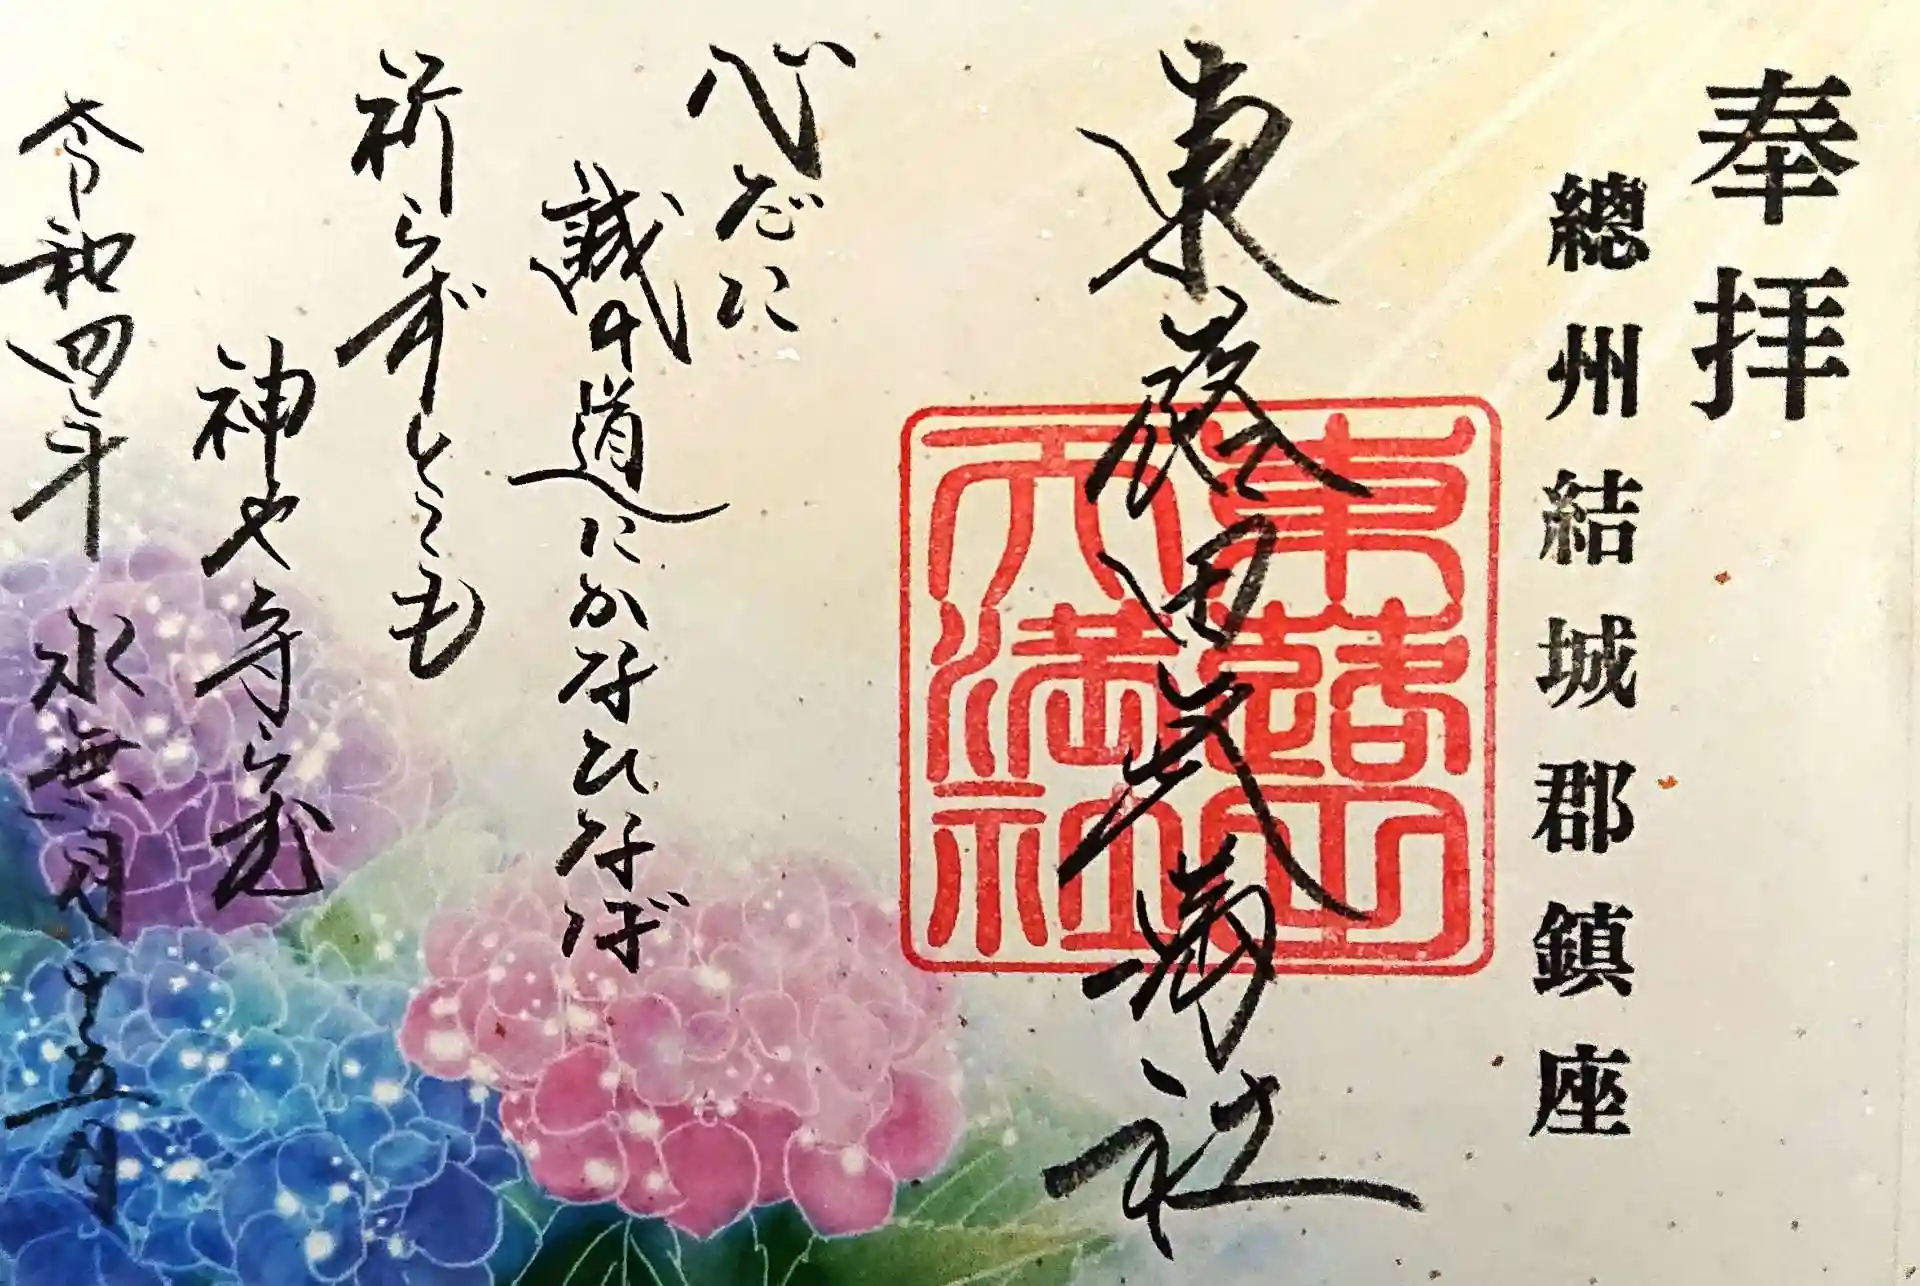 奉拝
總州結城郡鎮座
東蕗田天満社
東蕗田天満社
心だに
誠の道にかなひなば
祈らずとても
神や守らむ
令和四年水無月十五日